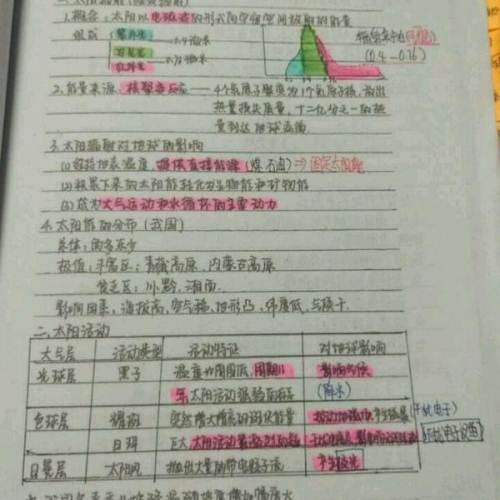 1.概念：太阳以电磁波的形式向宇宙空间放射的能量
组成 紫外光
可见光 0.4微米
红外光 0.76微米
能量集中在可见光
(0.4-0.76)
2.能量来源：核聚变反应——4个氢原子聚变为1个氦原子核，放出
热量损失质量，二十二亿分之一的热
量到达地球表面
3.太阳辐射对地球的影响
(1)维持地表温度，提供直接能源(煤石油)⇒固定太阳能
(2)积累下来的太阳能转化为生物能和矿物能
(3)成为大气运动和水循环的主要动力
4.太阳能的分布(我国)
总体：西多东少
极值：丰富区：青藏高原，内蒙古高原
贫乏区：川黔，湘南
影响因素：海拔高，空气稀，地形凸，纬度低，
二、太阳活动
大气层 活动类型 活动特征 对地球影响
光球层 黑子 温度比周围低，周期11 影响气候
年太阳活动强弱标志 (降水)
色球层 耀斑 突然增大增亮的斑块能量 (干扰电子)
日珥 太阳活动最激烈的 (干扰电子设备)
日冕层 太阳风 抛出大量的带电粒子流 产生极光